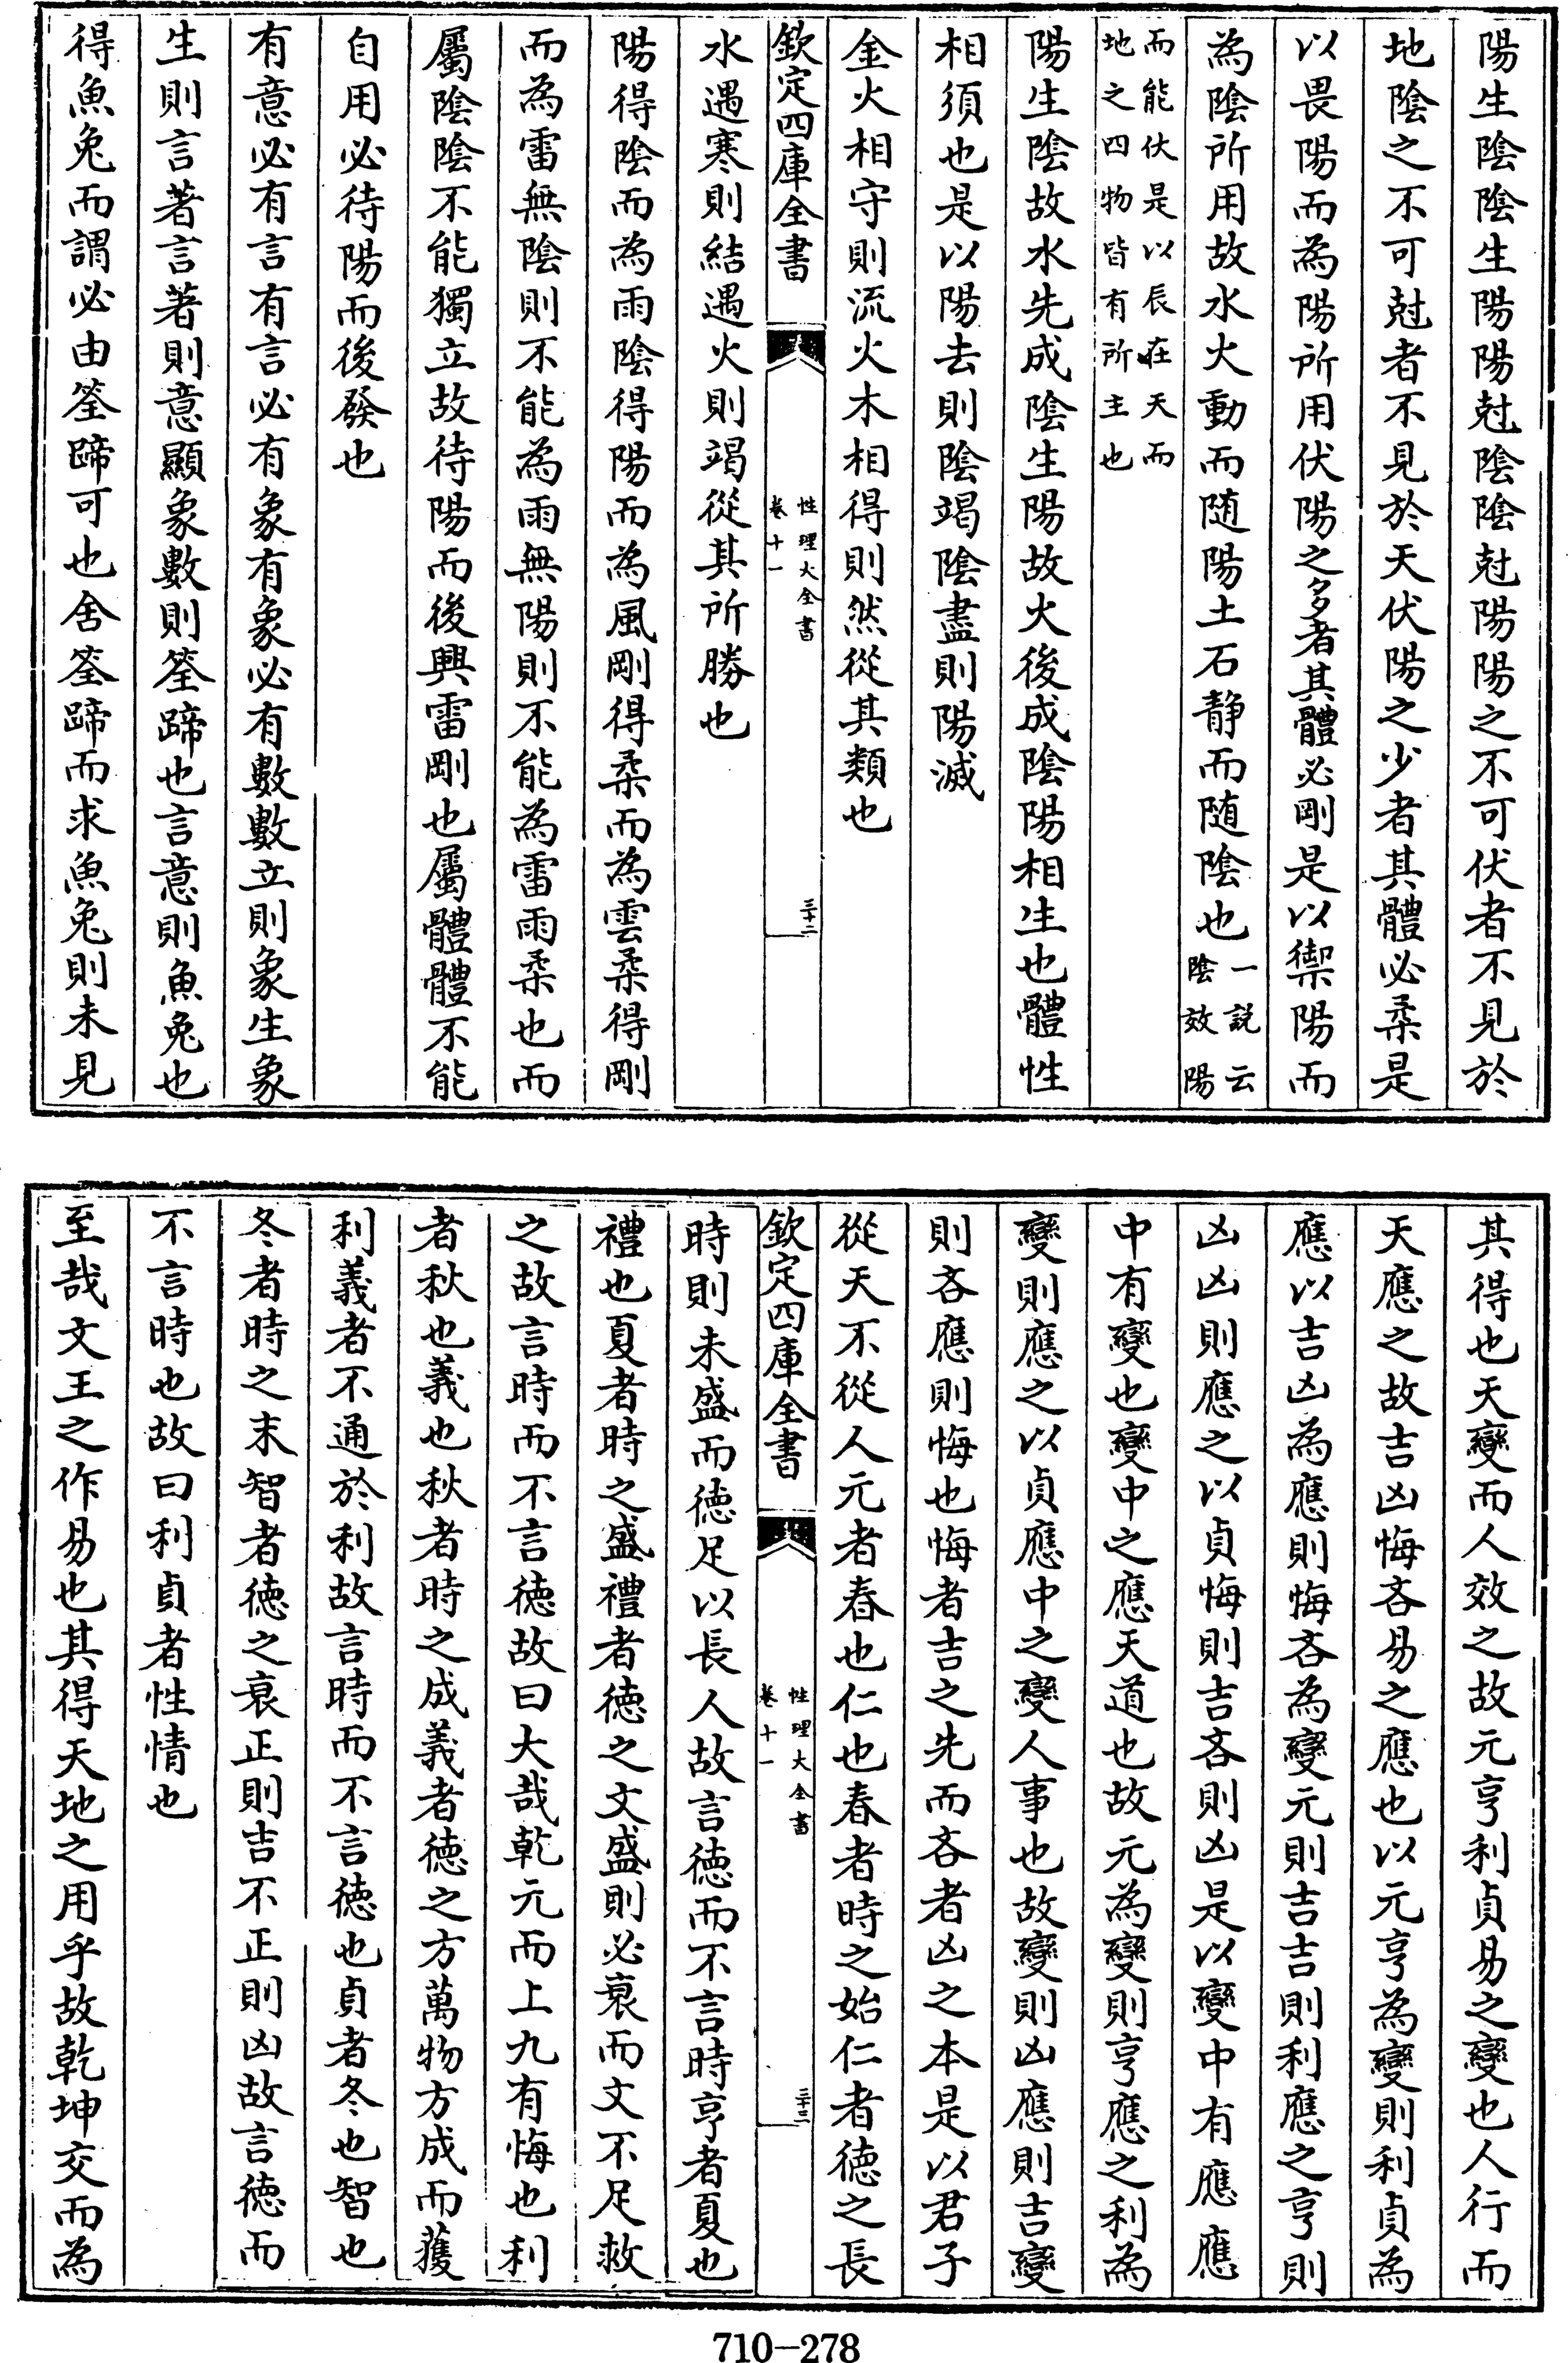 陽生陰陰生陽陽尅陰陰尅陽陽之不可伏者不見於
地陰之不可尅者不見於天伏陽之少者其體必柔是
以畏陽而為陽所用伏陽之多者其體必剛是以禦陽而
為陰所用故水火動而随陽土石静而随陰也一説云陰效陽
而能伏是以辰在天而地之四物皆有所主也
陽生陰故水先成陰生陽故火後成陰陽相生也體性
相須也是以陽去則陰竭陰盡則陽滅
金火相守則流火木相得則然從其類也
欽定四庫全書
性理大全書
卷十一
三十二
水遇寒則結遇火則竭從其所勝也
陽得陰而為雨陰得陽而為風剛得柔而為雲柔得剛
而為雷無陰則不能為雨無陽則不能為雷雨柔也而
屬陰陰不能獨立故待陽而後興雷剛也屬體體不能
自用必待陽而後發也
有意必有言有言必有象有象必有數數立則象生象
生則言著言著則意顯象數則筌蹄也言意則魚兔也
得魚兔而謂必由筌蹄可也舍筌蹄而求魚兔則未見
其得也天變而人效之故元亨利貞易之變也人行而
天應之故吉凶悔吝易之應也以元亨為變則利貞為
應以吉凶為應則悔吝為變元則吉吉則利應之亨則
凶凶則應之以貞悔則吉吝則凶是以變中有應應
中有變也變中之應天道也故元為變則亨應之利為
變則應之以貞應中之變人事也故變則凶應則吉變
則吝應則悔也悔者吉之先而吝者凶之本是以君子
從天不從人元者春也仁也春者時之始仁者德之長
欽定四庫全書
性理大全書
卷十一
三十三
時則未盛而德足以長人故言德而不言時亨者夏也
禮也夏者時之盛禮者德之文盛則必衰而文不足救
之故言時而不言德故曰大哉乾元而上九有悔也利
者秋也義也秋者時之成義者德之方萬物方成而獲
利義者不通於利故言時而不言德也貞者冬也智也
冬者時之末智者德之衰正則吉不正則凶故言德而
不言時也故曰利貞者性情也
至哉文王之作易也其得天地之用乎故乾坤交而為
710-278